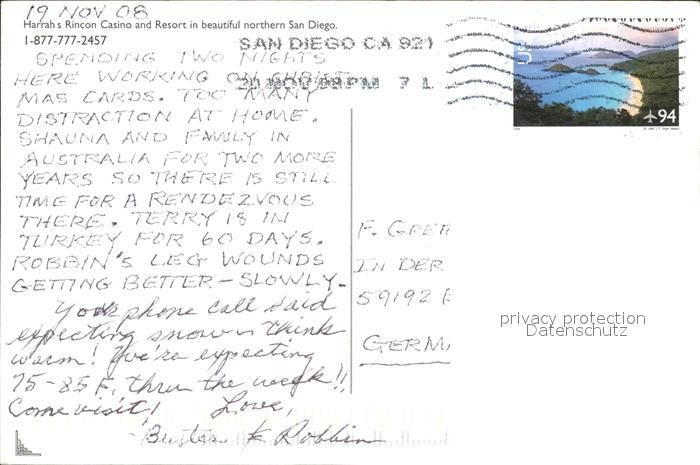 19 NOV 08
Harrah's Rincon Casino and Resort in beautiful northern San Diego.
1-877-777-2457
SPENDING TWO NIGHTS
HERE WORKING ON CHRIST
MAS CARDS. TOO MANY
DISTRACTION AT HOME.
SHAUNA AND FAMILY IN
AUSTRALIA FOR TWO MORE
YEARS SO THERE IS STILL
TIME FOR A RENDEZVOUS
THERE. TERRY IS IN
TURKEY FOR 60 DAYS.
ROBBIN'S LEG WOUNDS
GETTING BETTER - SLOWLY.
Your phone call said
expecting snow - think
warm! We're expecting
75-85 F. thru the week!!
Come visit! Love,
Buster & Robbin
SAN DIEGO CA 921
20 NOV 08 PM 7 L
94
F. GREH
IN DER
59192
GERMA
privacy protection
Datenschutz